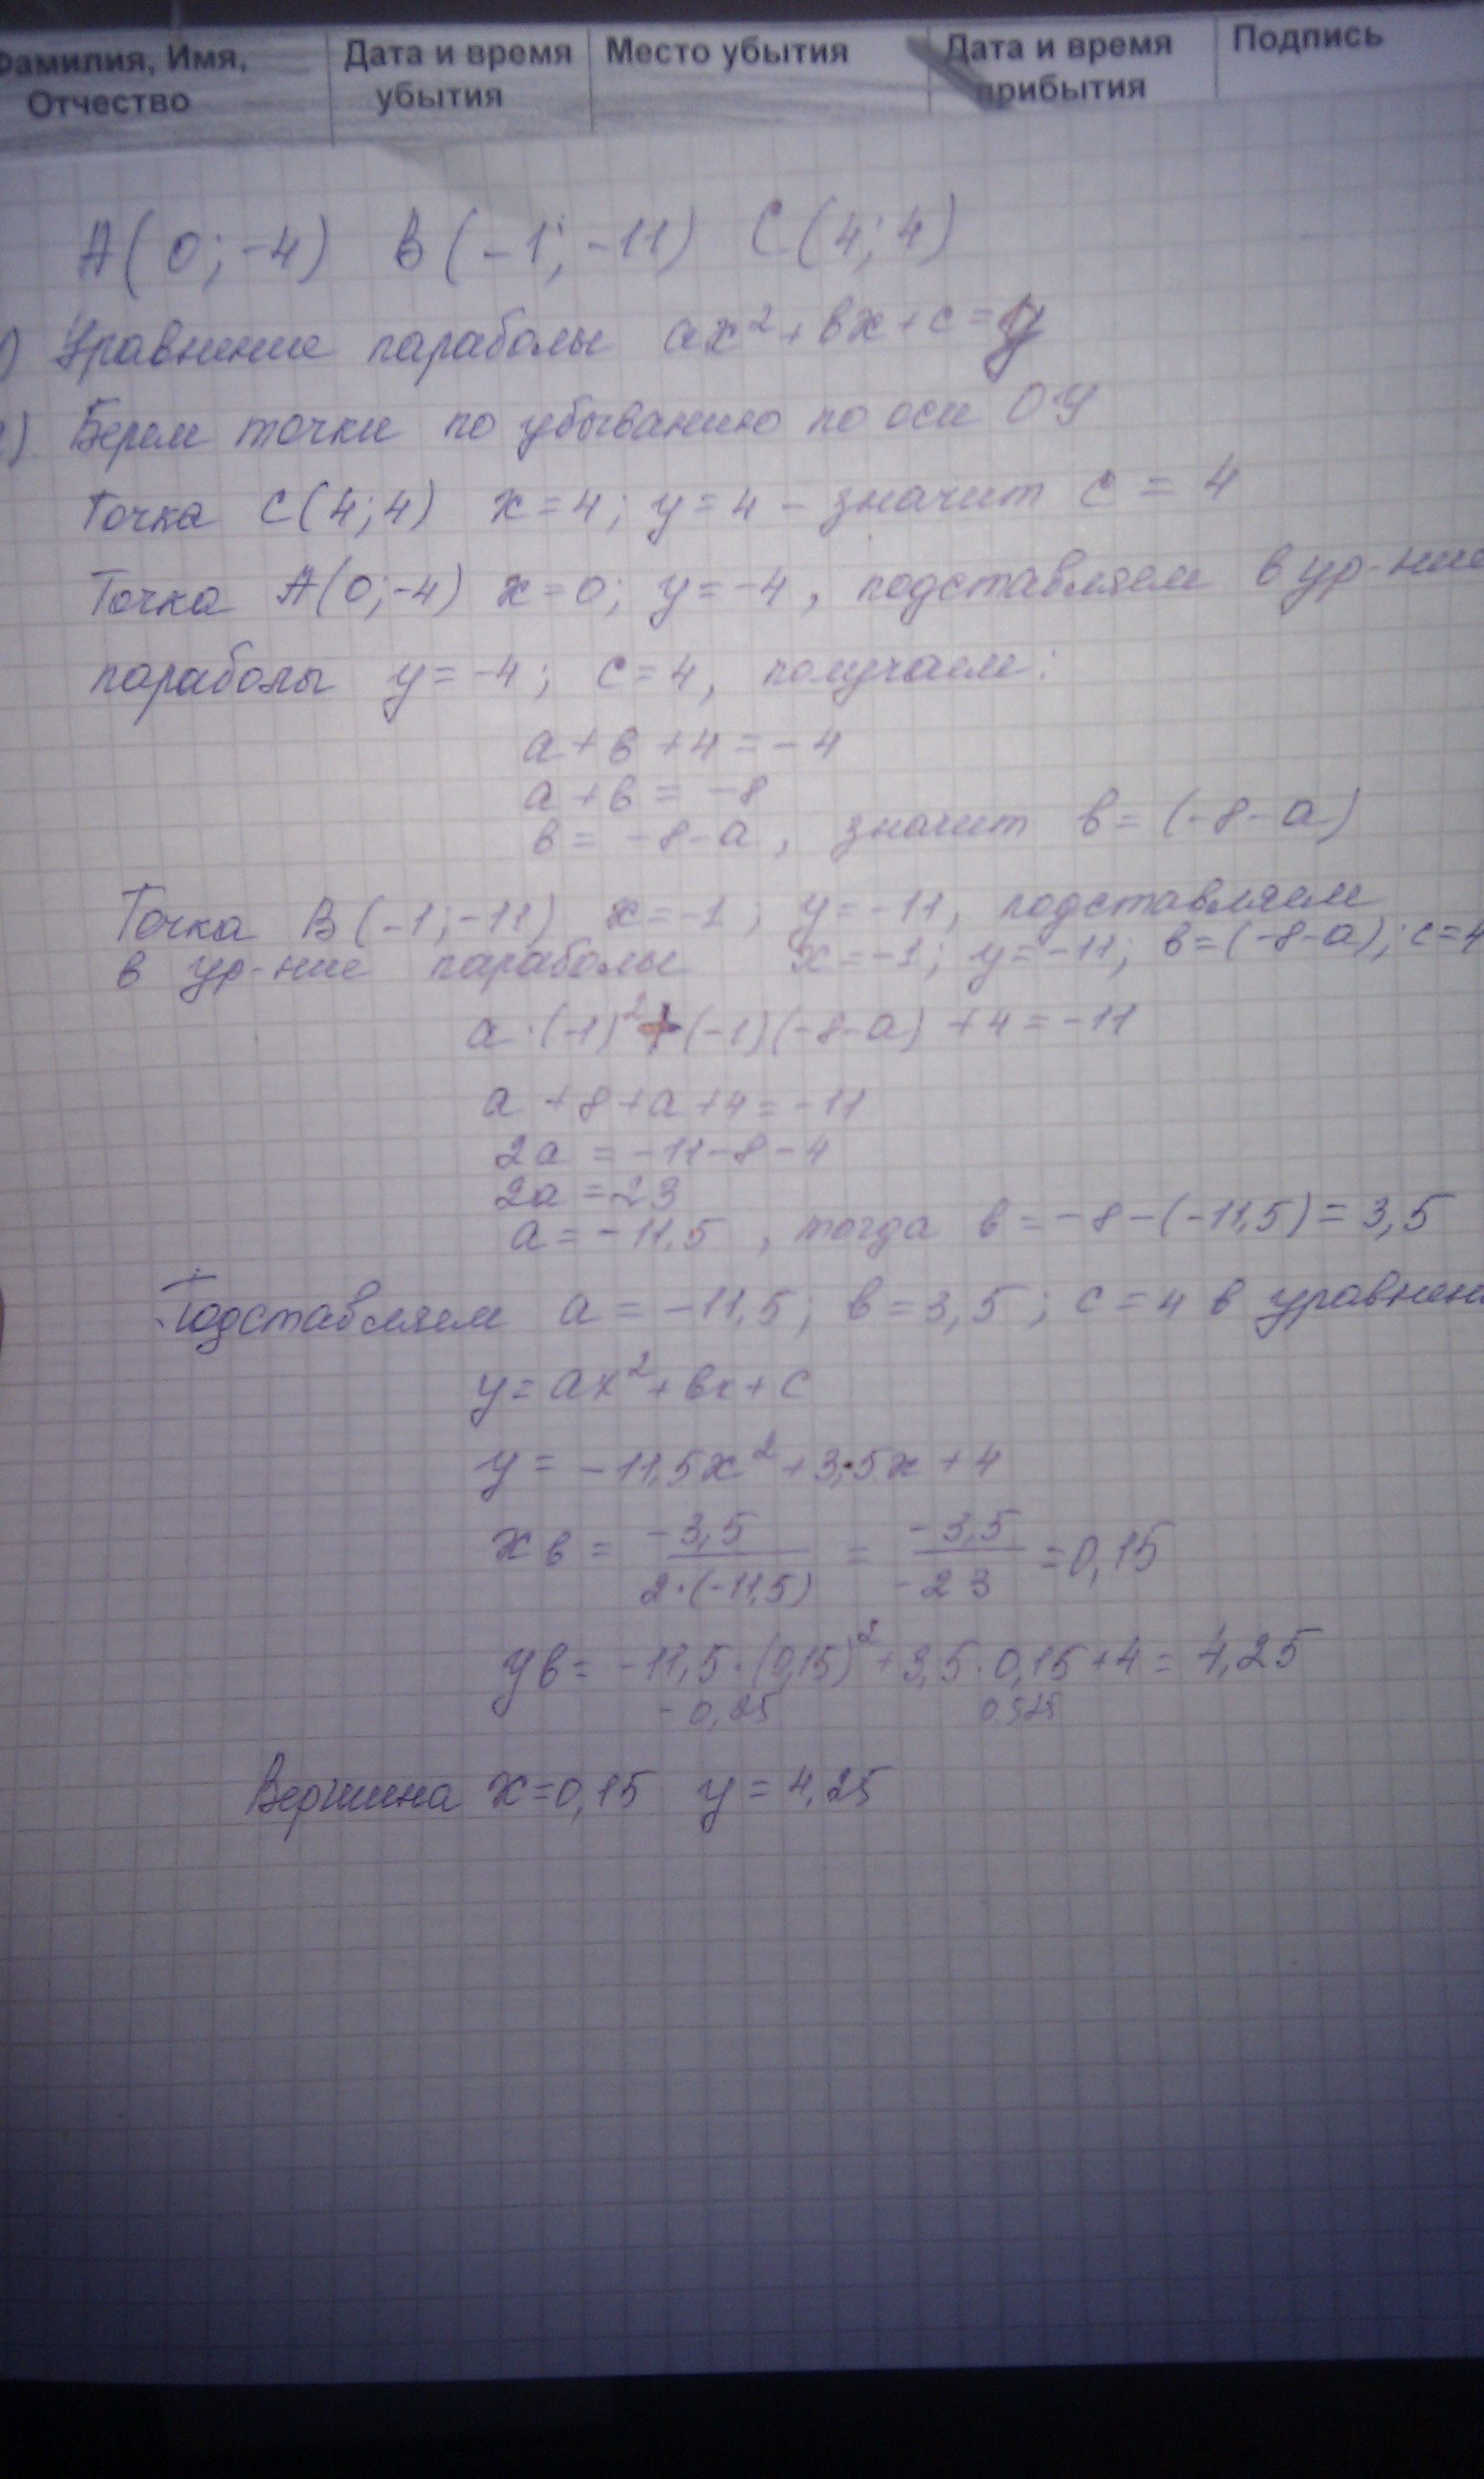 Фамилия, Имя, Отчество Дата и время убытия Место убытия Дата и время прибытия Подпись
A(0;-4) B(-1;-11) C(4;4)
) Уравнение параболы ax²+bx+c=y
). Берем точки по убыванию по оси ОУ
Точка C(4;4) x=4; y=4 - значит c=4
Точка A(0;-4) x=0; y=-4, подставляем в ур-ние
параболы y=-4; c=4, получаем:
a+b+4=-4
a+b=-8
b=-8-a, значит b=(-8-a)
Точка B(-1;-11) x=-1; y=-11, подставляем
в ур-ние параболы x=-1; y=-11; b=(-8-a); c=4
a·(-1)²+(-1)(-8-a)+4=-11
a+8+a+4=-11
2a=-11-8-4
2a=23
a=-11,5, тогда b=-8-(-11,5)=3,5
Подставляем a=-11,5; b=3,5; c=4 в уравнен
y=ax²+bx+c
y=-11,5x²+3,5x+4
xв = -3,5 / 2·(-11,5) = -3,5 / -23 = 0,15
yв = -11,5·(0,15)²+3,5·0,15+4=4,25
-0,25 0,525
Вершина x=0,15 y=4,25